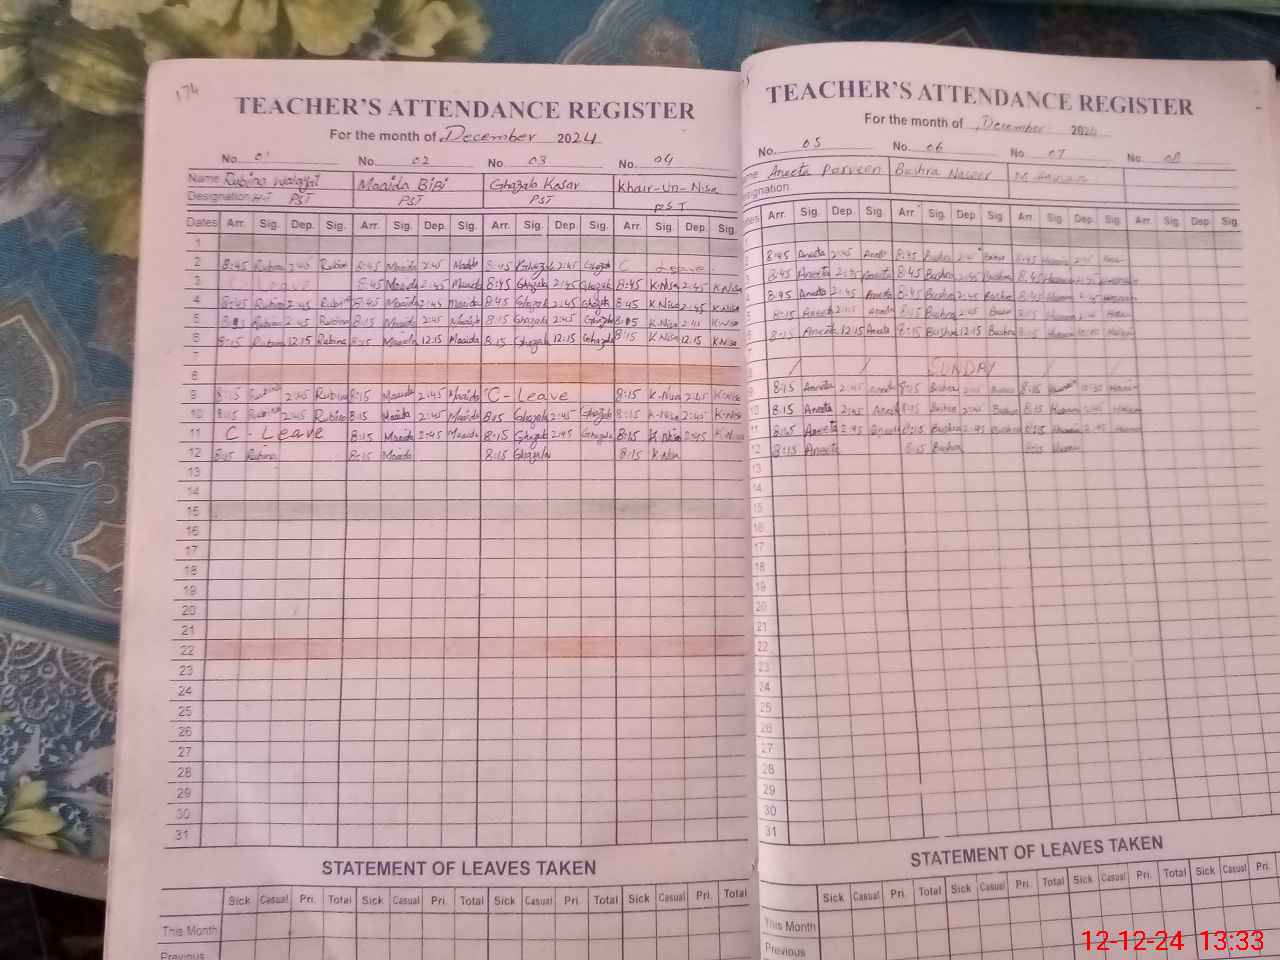 174
TEACHER'S ATTENDANCE REGISTER
For the month of December 2024
No. 01 No. 02 No. 03 No. 04
Name Rubina Maaida BiBi Ghazala Kosar Khair-un-Nisa
Designation PST PST PST PST
Dates Arr. Sig. Dep. Sig. Arr. Sig. Dep. Sig. Arr. Sig. Dep. Sig. Arr. Sig. Dep. Sig.
1
2 8:45 Rubina 2:45 Rubina 8:45 Maaida 2:45 Maaida 8:45 Ghazala 2:45 Ghazala C Leave
3 Leave 8:45 Maaida 2:45 Maaida 8:45 Ghazala 2:45 Ghazala 8:45 K.Nisa 2:45 K.Nisa
4 8:45 Rubina 2:45 Rubina 8:45 Maaida 2:45 Maaida 8:45 Ghazala 2:45 Ghazala 8:45 K.Nisa 2:45 K.Nisa
5 8:15 Rubina 2:45 Rubina 8:15 Maaida 2:45 Maaida 8:15 Ghazala 2:45 Ghazala 8:15 K.Nisa 2:45 K.Nisa
6 8:15 Rubina 12:15 Rubina 8:15 Maaida 12:15 Maaida 8:15 Ghazala 12:15 Ghazala 8:15 K Nisa 12:15 K Nisa
7
8
9 8:15 Rubina 2:45 Rubina 8:15 Maaida 2:45 Maaida C-Leave 8:15 K-Nisa 2:45 K-Nisa
10 8:15 Rubina 2:45 Rubina 8:15 Maaida 2:45 Maaida 8:15 Ghazala 2:45 Ghazala 8:15 K-Nisa 2:45 K-Nisa
11 C-Leave 8:15 Maaida 2:45 Maaida 8:15 Ghazala 2:45 Ghazala 8:15 K Nisa 2:45 K Nisa
12 8:15 Rubina 8:15 Maaida 8:15 Ghazala 8:15 K.Nisa
13
14
15
16
17
18
19
20
21
22
23
24
25
26
27
28
29
30
31
STATEMENT OF LEAVES TAKEN
Sick Casual Pri. Total Sick Casual Pri. Total Sick Casual Pri. Total Sick Casual Pri. Total
This Month
Previous
TEACHER'S ATTENDANCE REGISTER
For the month of December 2024
No. 05 No. 06 No. 07 No. 08
Aneeta Parveen Bushra Naseer
Arr. Sig. Dep. Sig. Arr. Sig. Dep. Sig. Arr. Sig. Dep. Sig. Arr. Sig. Dep. Sig.
8:45 Aneeta 2:45 8:45 Bushra 8:45
8:45 Aneeta 2:45 Aneeta 8:45 Bushra 2:45 Bushra 8:45
8:45 Aneeta 2:45 Aneeta 8:45 Bushra 2:45 Bushra 8:45
8:15 Aneeta 8:45 Bushra 2:45
8:15 Aneeta 12:15 Aneeta 8:15 Bushra 12:15 Bushra 8:15
SUNDAY
8:15 Aneeta 2:45 8:15 Bushra 2:45 Bushra 8:15
10 8:15 Aneeta 2:45 8:15 Bushra 2:45 Bushra 8:15
11 8:15 Aneeta 2:45 Aneeta 8:15 Bushra 2:45 Bushra 8:15 2:45
12 8:15 Aneeta 8:15 Bushra 8:15
13
14
15
16
17
18
19
20
21
22
23
24
25
26
27
28
29
30
31
STATEMENT OF LEAVES TAKEN
Sick Casual Pri. Total Sick Casual Pri. Total Sick Casual Pri. Total Sick Casual Pri. Total
This Month
Previous
12-12-24 13:33